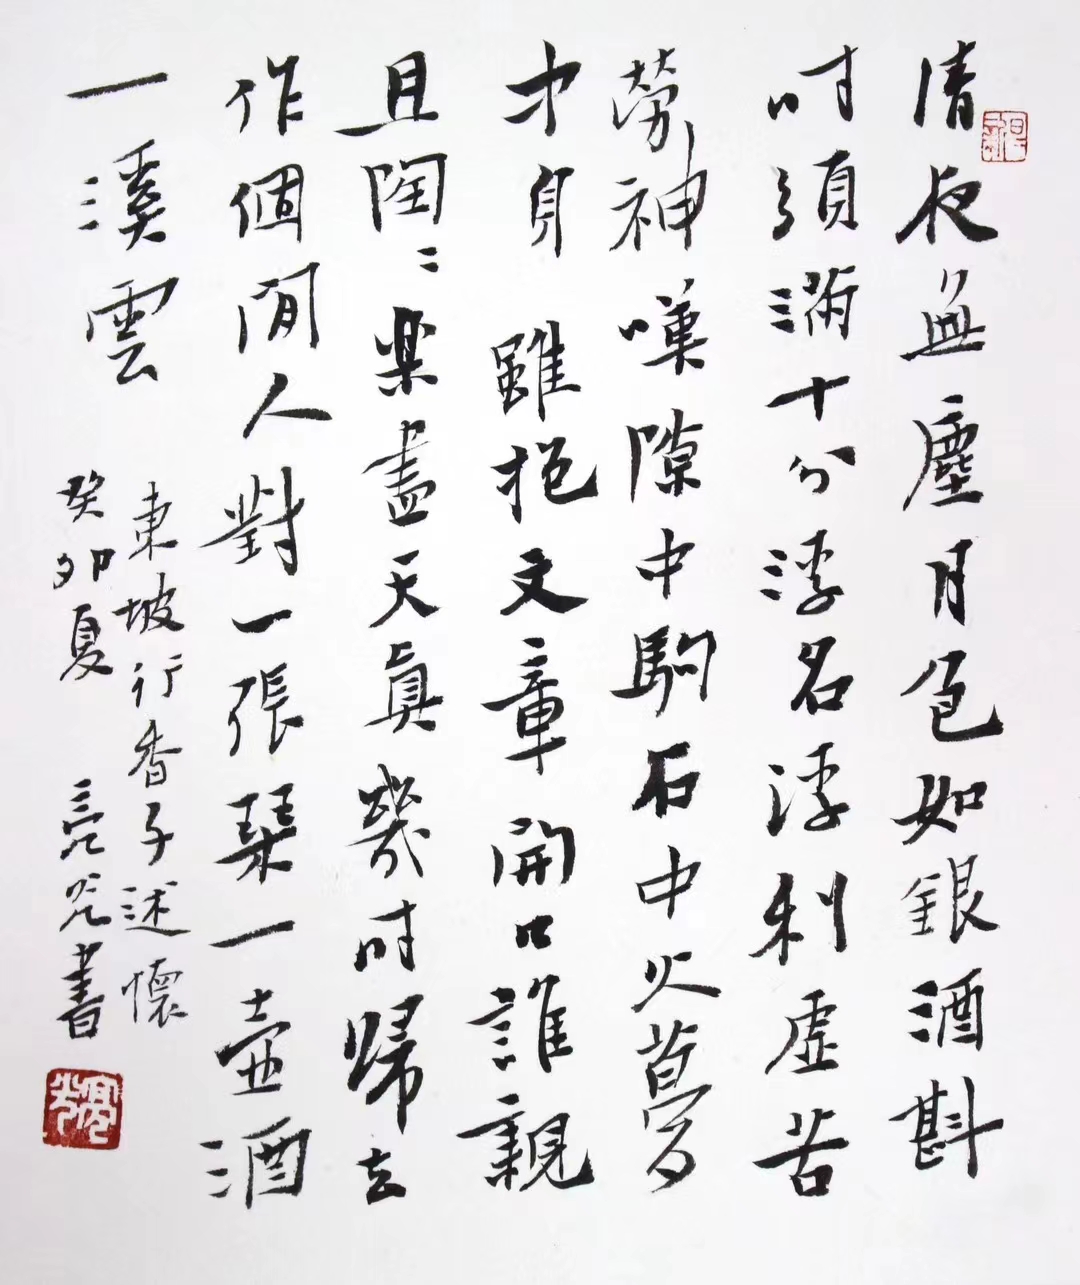 清夜無塵月色如銀酒斟
时須滿十分浮名浮利虛苦
勞神嘆隙中駒石中火夢
中身雖抱文章開口誰親
且陶〻樂盡天真幾时歸去
作個閒人對一張琴一壺酒
一溪雲
東坡行香子述懷
癸卯夏 亮光書
亮光